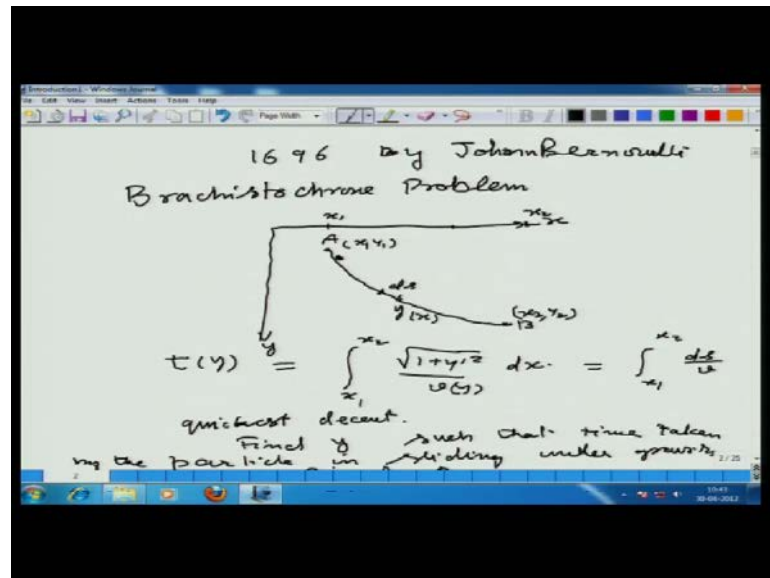 Introduction1 - Windows Journal
File Edit View Insert Actions Tools Help
Page Width
1696 by Johann Bernoulli
Brachistochrone Problem
x₁ x₂ x
A (x₁ y₁)
ds
y(x)
(x₂, y₂)
B
y
t(y) = ∫_{x₁}^{x₂} √(1+y'²) / v(y) dx. = ∫_{x₁}^{x₂} ds/v
quickest decent.
Find y such that time taken
by the particle in sliding under gravity
2 / 25
2
10:43
30-06-2012